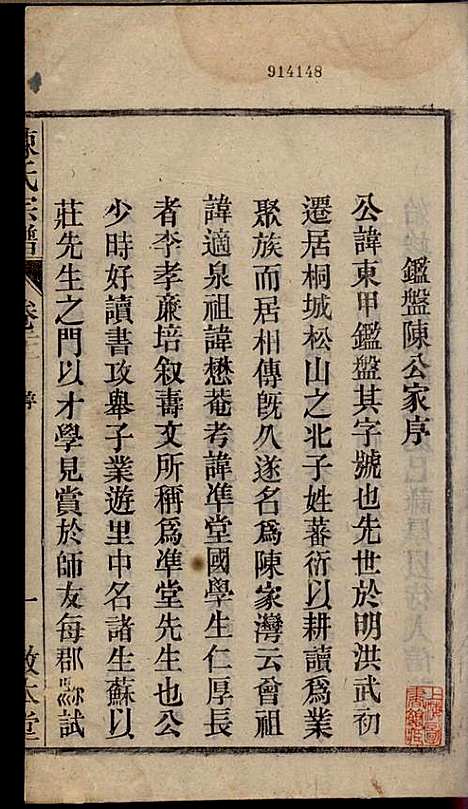 914148
鑑盤陳公家序
公諱東甲鑑盤其字號也先世於明洪武初
遷居桐城松山之北子姓蕃衍以耕讀爲業
聚族而居相傳旣久遂名爲陳家灣云曾祖
諱適泉祖諱懋菴考諱準堂國學生仁厚長
者李孝廉培叙壽文所稱爲準堂先生也公
少時好讀書攻舉子業遊里中名諸生蘇以
莊先生之門以才學見賞於師友每郡縣試
陳氏宗譜
卷
序
一
敦本堂